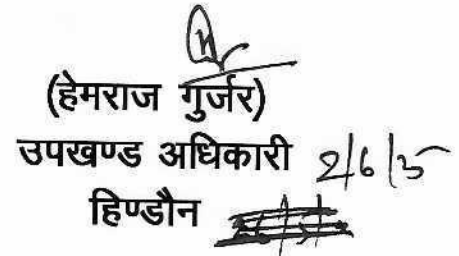 (हेमराज गुर्जर)
उपखण्ड अधिकारी 2/6/25
हिण्डौन